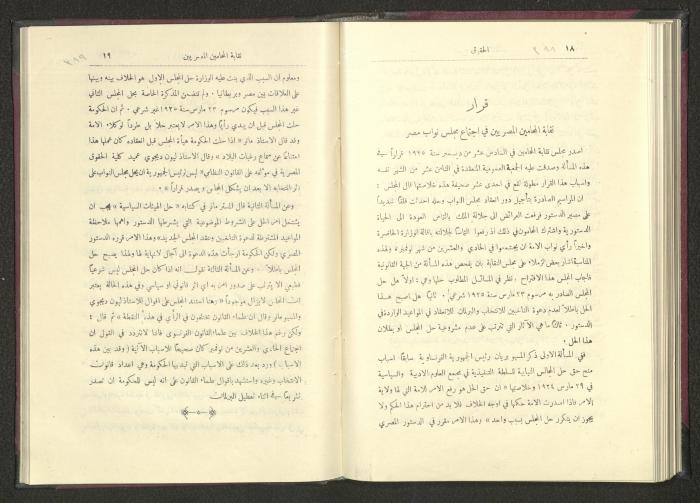 ١٨
الحقوق
قرار
نقابة المحامين المصريين في اجتماع مجلس نواب مصر
اصدر مجلس نقابة المحامين في السادس عشر من ديسمبر سنة ١٩٢٥ قراراً في
هذه المسألة وصدقت عليه الجمعية العمومية المنعقدة في الثامن عشر من الشهر نفسه
واسباب هذا القرار مطولة تقع في احدى عشر صحيفة هذه خلاصتها الى المجلس :
ان المراسيم الصادرة بتأجيل دور انعقاد مجلس النواب وحله احدثت قلقاً شديداً
على مصير الدستور فرفعت العرائض الى جلالة الملك بالتماس العودة الى الحياة
الدستورية واشترك المحامون في ذلك اذ رفعوا التماسا لجلالته باقالة الوزارة الحاضرة
واخيراً رأى نواب الامة ان يجتمعوا في الحادي والعشرين من شهر نوفمبر ولهذه
المناسبة اشار بعض الزملاء على مجلس النقابة بان يفحص هذه المسألة من الجهة القانونية
فاجاب المجلس هذا الاقتراح ونظر في المسائل المطلوب حلها وهي : اولاً هل حل
المجلس الصادر به مرسوم ٢٣ مارس سنة ١٩٢٥ شرعي ؟ ثانياً هل اصبح هذا
الحل باطلاً لعدم دعوة الناخبين للانتخاب والبرلمان للانعقاد في المواعيد الواردة في
الدستور . ثالثاً ما هي الآثار التي تترتب على عدم مشروعية حل المجلس او بطلان
هذا الحل .
ففي المسألة الاولى ذكر المسيو بريان رئيس الجمهورية الفرنساوية سابقاً اسباب
منح حق حل المجالس النيابية للسلطة التنفيذية في مجمع العلوم الادبية والسياسية
في ٢٩ مارس ١٩٢٤ وخلاصتها « ان حق الحل هو رفع الامر للامة التي لها ولاية
الامر فاذا اصدرت الامة حكمها في اوجه الخلاف فلا بد من احترام هذا الحكم ولا
يجوز ان يتكرر حل المجلس بسبب واحد » وهذا الامر مقرر في الدستور المصري
نقابة المحامين المصريين
١٩
ومعلوم ان السبب الذي بنت عليه الوزارة حل المجلس الاول هو الخلاف بينه وبينها
على العلاقات بين مصر وبريطانيا . ولم تتضمن المذكرة الخاصة بحل المجلس الثاني
غير هذا السبب فيكون مرسوم ٢٣ مارس سنة ١٩٢٥ غير شرعي . ثم ان الحكومة
حلت المجلس قبل ان يبدي رأياً وهذا الامر لا يعتبر حلاً بل طرداً لوكلاء الامة
وقد قال الاستاذ ماتر « اذا حلت الحكومة هيأة المجلس قبل انعقاده كان عملها هذا
امتناعاً عن سماع رغبات البلاد » وقال الاستاذ ليون ديجوي عميد كلية الحقوق
المصرية في مؤلفه على القانون النظامي « ليس لرئيس الجمهورية ان يحل مجلس النواب على
اثر انتخابه الا بعد ان يشكل المجلس ويصدر قراراً » .
وعن المسألة الثانية قال المستر ماتر في كتابه « حل الهيئات السياسية » يجب ان
يشتمل امر الحل على الشروط الموضوعية التي يشترطها الدستور واهمها ملاحظة
المواعيد المشترطة لدعوة الناخبين وعقد المجلس الجديد » وهذا الامر قرره الدستور
المصري ولكن الحكومة ارجأت هذه الدعوة الى آجال لا نهاية لها ولهذا يصبح حل
المجلس باطلاً . وعن المسألة الثالثة نقول انه اذا كان حل المجلس ليس شرعياً
فطبيعي الا يترتب على صدور امر به اي اثر قانوني او سياسي وفي هذه الحالة يعتبر
المجلس لا يزال موجوداً » وهنا استند المجلس على اقوال للاستاذ ليون ديجوي
والمسيو ماتر وقال ان علماء القانون مختلفون في الرأي في هذه النقطة » ثم قال :
ولكن رغم هذا الخلاف بين علماء القانون الفرنسوي فاننا لا نتردد في القول ان
اجتماع الحادي والعشرين من نوفمبر كان صحيحاً للاسباب الآتية ( وقد بين هذه
الاسباب ) ورد بعد ذلك على الاسباب التي تبديها الحكومة وهي اعداد قانون
الانتخاب وغيره واستشهد باقوال علماء القانون على انه ليس للحكومة ان تصدر
تشريعاً في اثناء تعطيل البرلمان